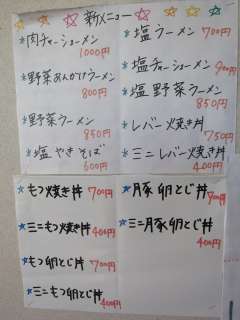 ☆☆☆新メニュー☆☆☆
*肉チャーシューメン
1000円
*野菜あんかけラーメン
800円
*野菜ラーメン
850円
*塩やきそば
600円
*塩ラーメン 700円
*塩チャーシューメン
900円
*塩野菜ラーメン
850円
*レバー焼き丼
750円
*ミニレバー焼き丼
400円
★もつ焼き丼 700円
★ミニもつ焼き丼
400円
★もつ卵とじ丼
700円
★ミニもつ卵とじ丼
400円
★豚卵とじ丼
700円
★ミニ豚卵とじ丼
400円